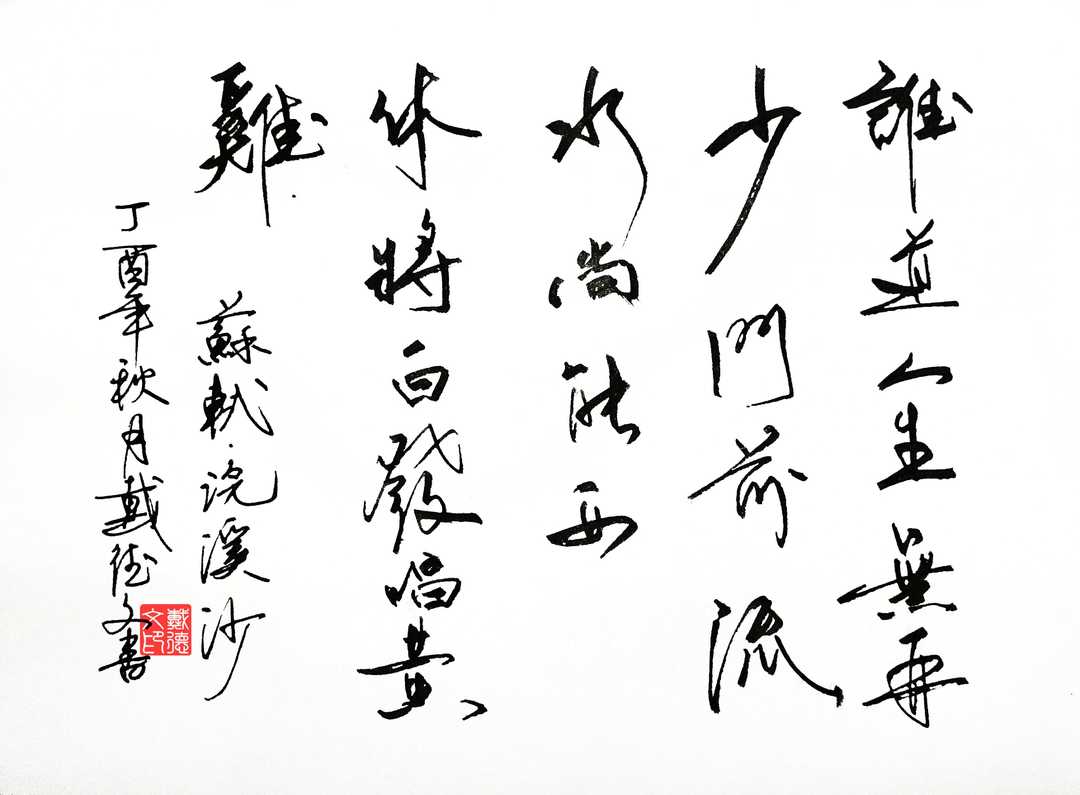 誰道人生無再
少門前流
水尚能西
休將白發唱黃
雞 蘇軾·浣溪沙
丁酉年秋月戴德文書
戴德文印